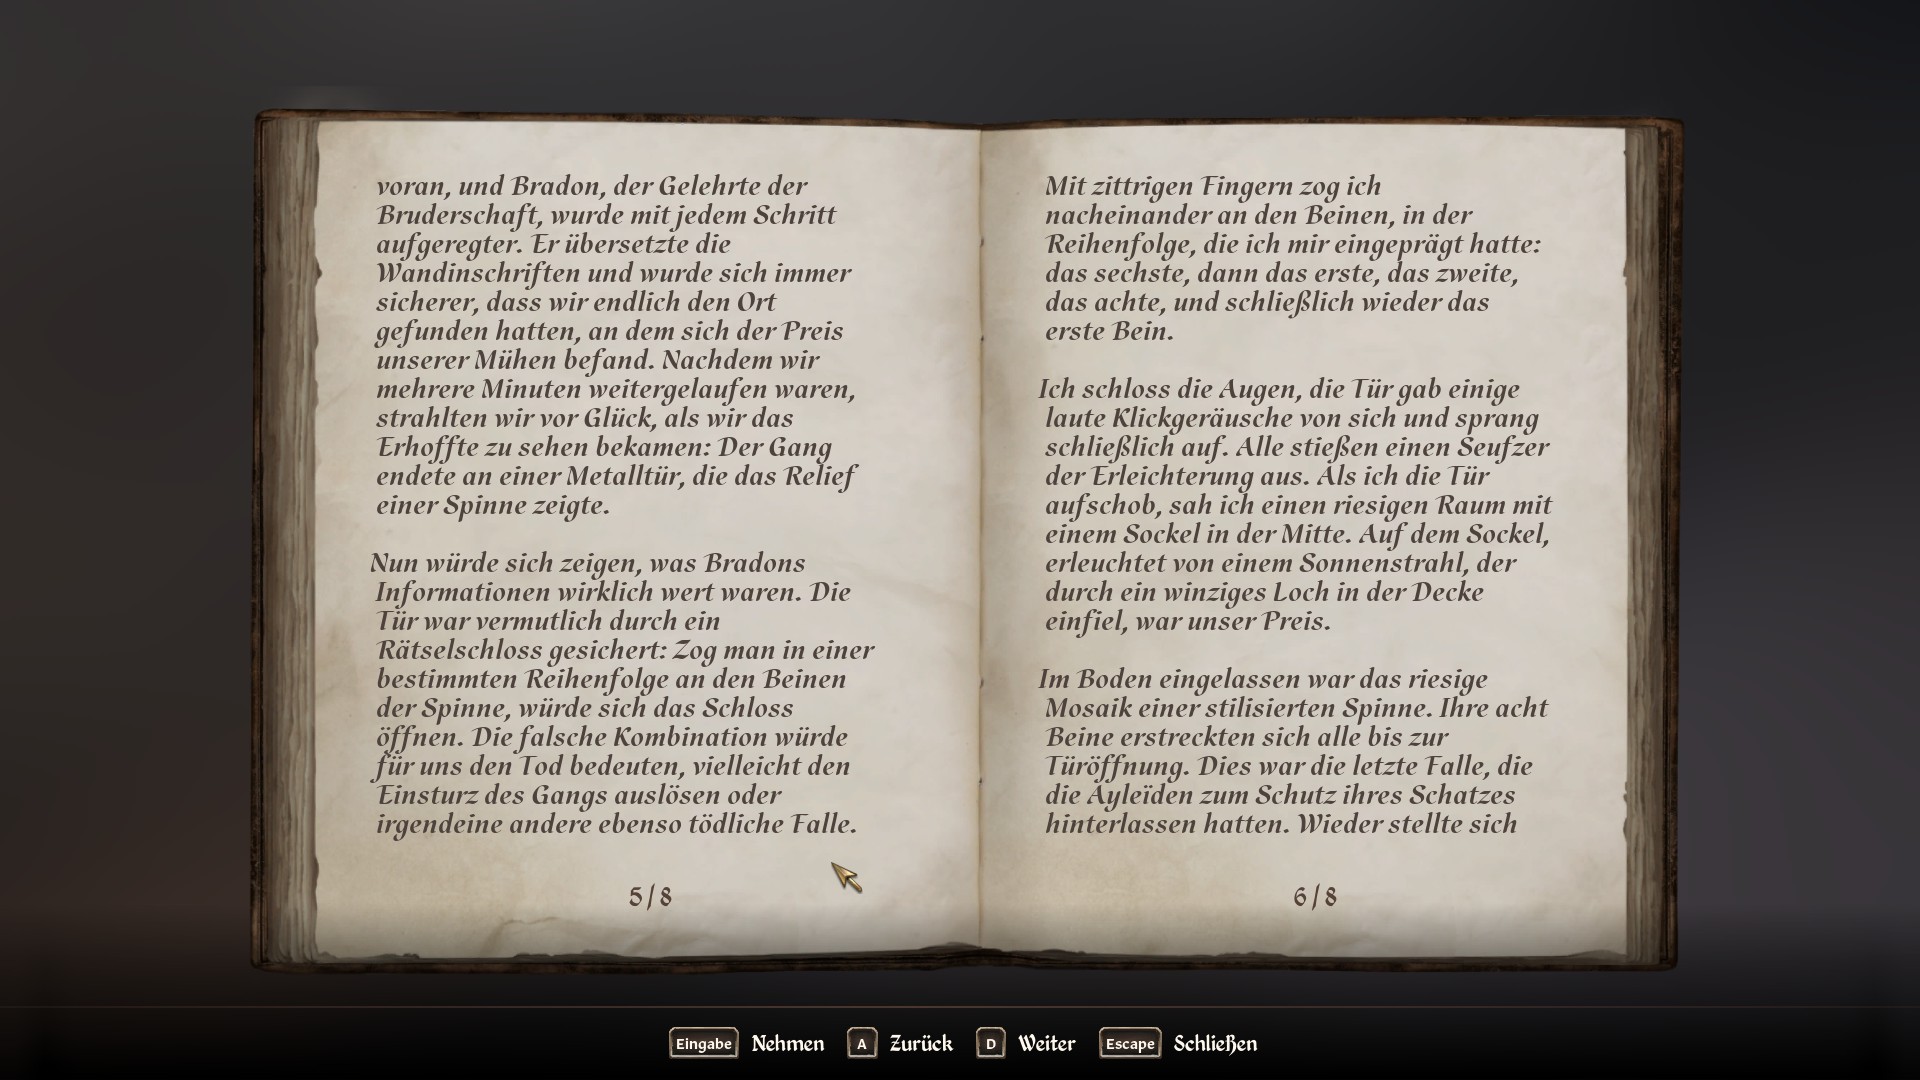 voran, und Bradon, der Gelehrte der
Bruderschaft, wurde mit jedem Schritt
aufgeregter. Er übersetzte die
Wandinschriften und wurde sich immer
sicherer, dass wir endlich den Ort
gefunden hatten, an dem sich der Preis
unserer Mühen befand. Nachdem wir
mehrere Minuten weitergelaufen waren,
strahlten wir vor Glück, als wir das
Erhoffte zu sehen bekamen: Der Gang
endete an einer Metalltür, die das Relief
einer Spinne zeigte.
Nun würde sich zeigen, was Bradons
Informationen wirklich wert waren. Die
Tür war vermutlich durch ein
Rätselschloss gesichert: Zog man in einer
bestimmten Reihenfolge an den Beinen
der Spinne, würde sich das Schloss
öffnen. Die falsche Kombination würde
für uns den Tod bedeuten, vielleicht den
Einsturz des Gangs auslösen oder
irgendeine andere ebenso tödliche Falle.
5/8
Mit zittrigen Fingern zog ich
nacheinander an den Beinen, in der
Reihenfolge, die ich mir eingeprägt hatte:
das sechste, dann das erste, das zweite,
das achte, und schließlich wieder das
erste Bein.
Ich schloss die Augen, die Tür gab einige
laute Klickgeräusche von sich und sprang
schließlich auf. Alle stießen einen Seufzer
der Erleichterung aus. Als ich die Tür
aufschob, sah ich einen riesigen Raum mit
einem Sockel in der Mitte. Auf dem Sockel,
erleuchtet von einem Sonnenstrahl, der
durch ein winziges Loch in der Decke
einfiel, war unser Preis.
Im Boden eingelassen war das riesige
Mosaik einer stilisierten Spinne. Ihre acht
Beine erstreckten sich alle bis zur
Türöffnung. Dies war die letzte Falle, die
die Ayleïden zum Schutz ihres Schatzes
hinterlassen hatten. Wieder stellte sich
6/8
Eingabe Nehmen A Zurück D Weiter Escape Schließen